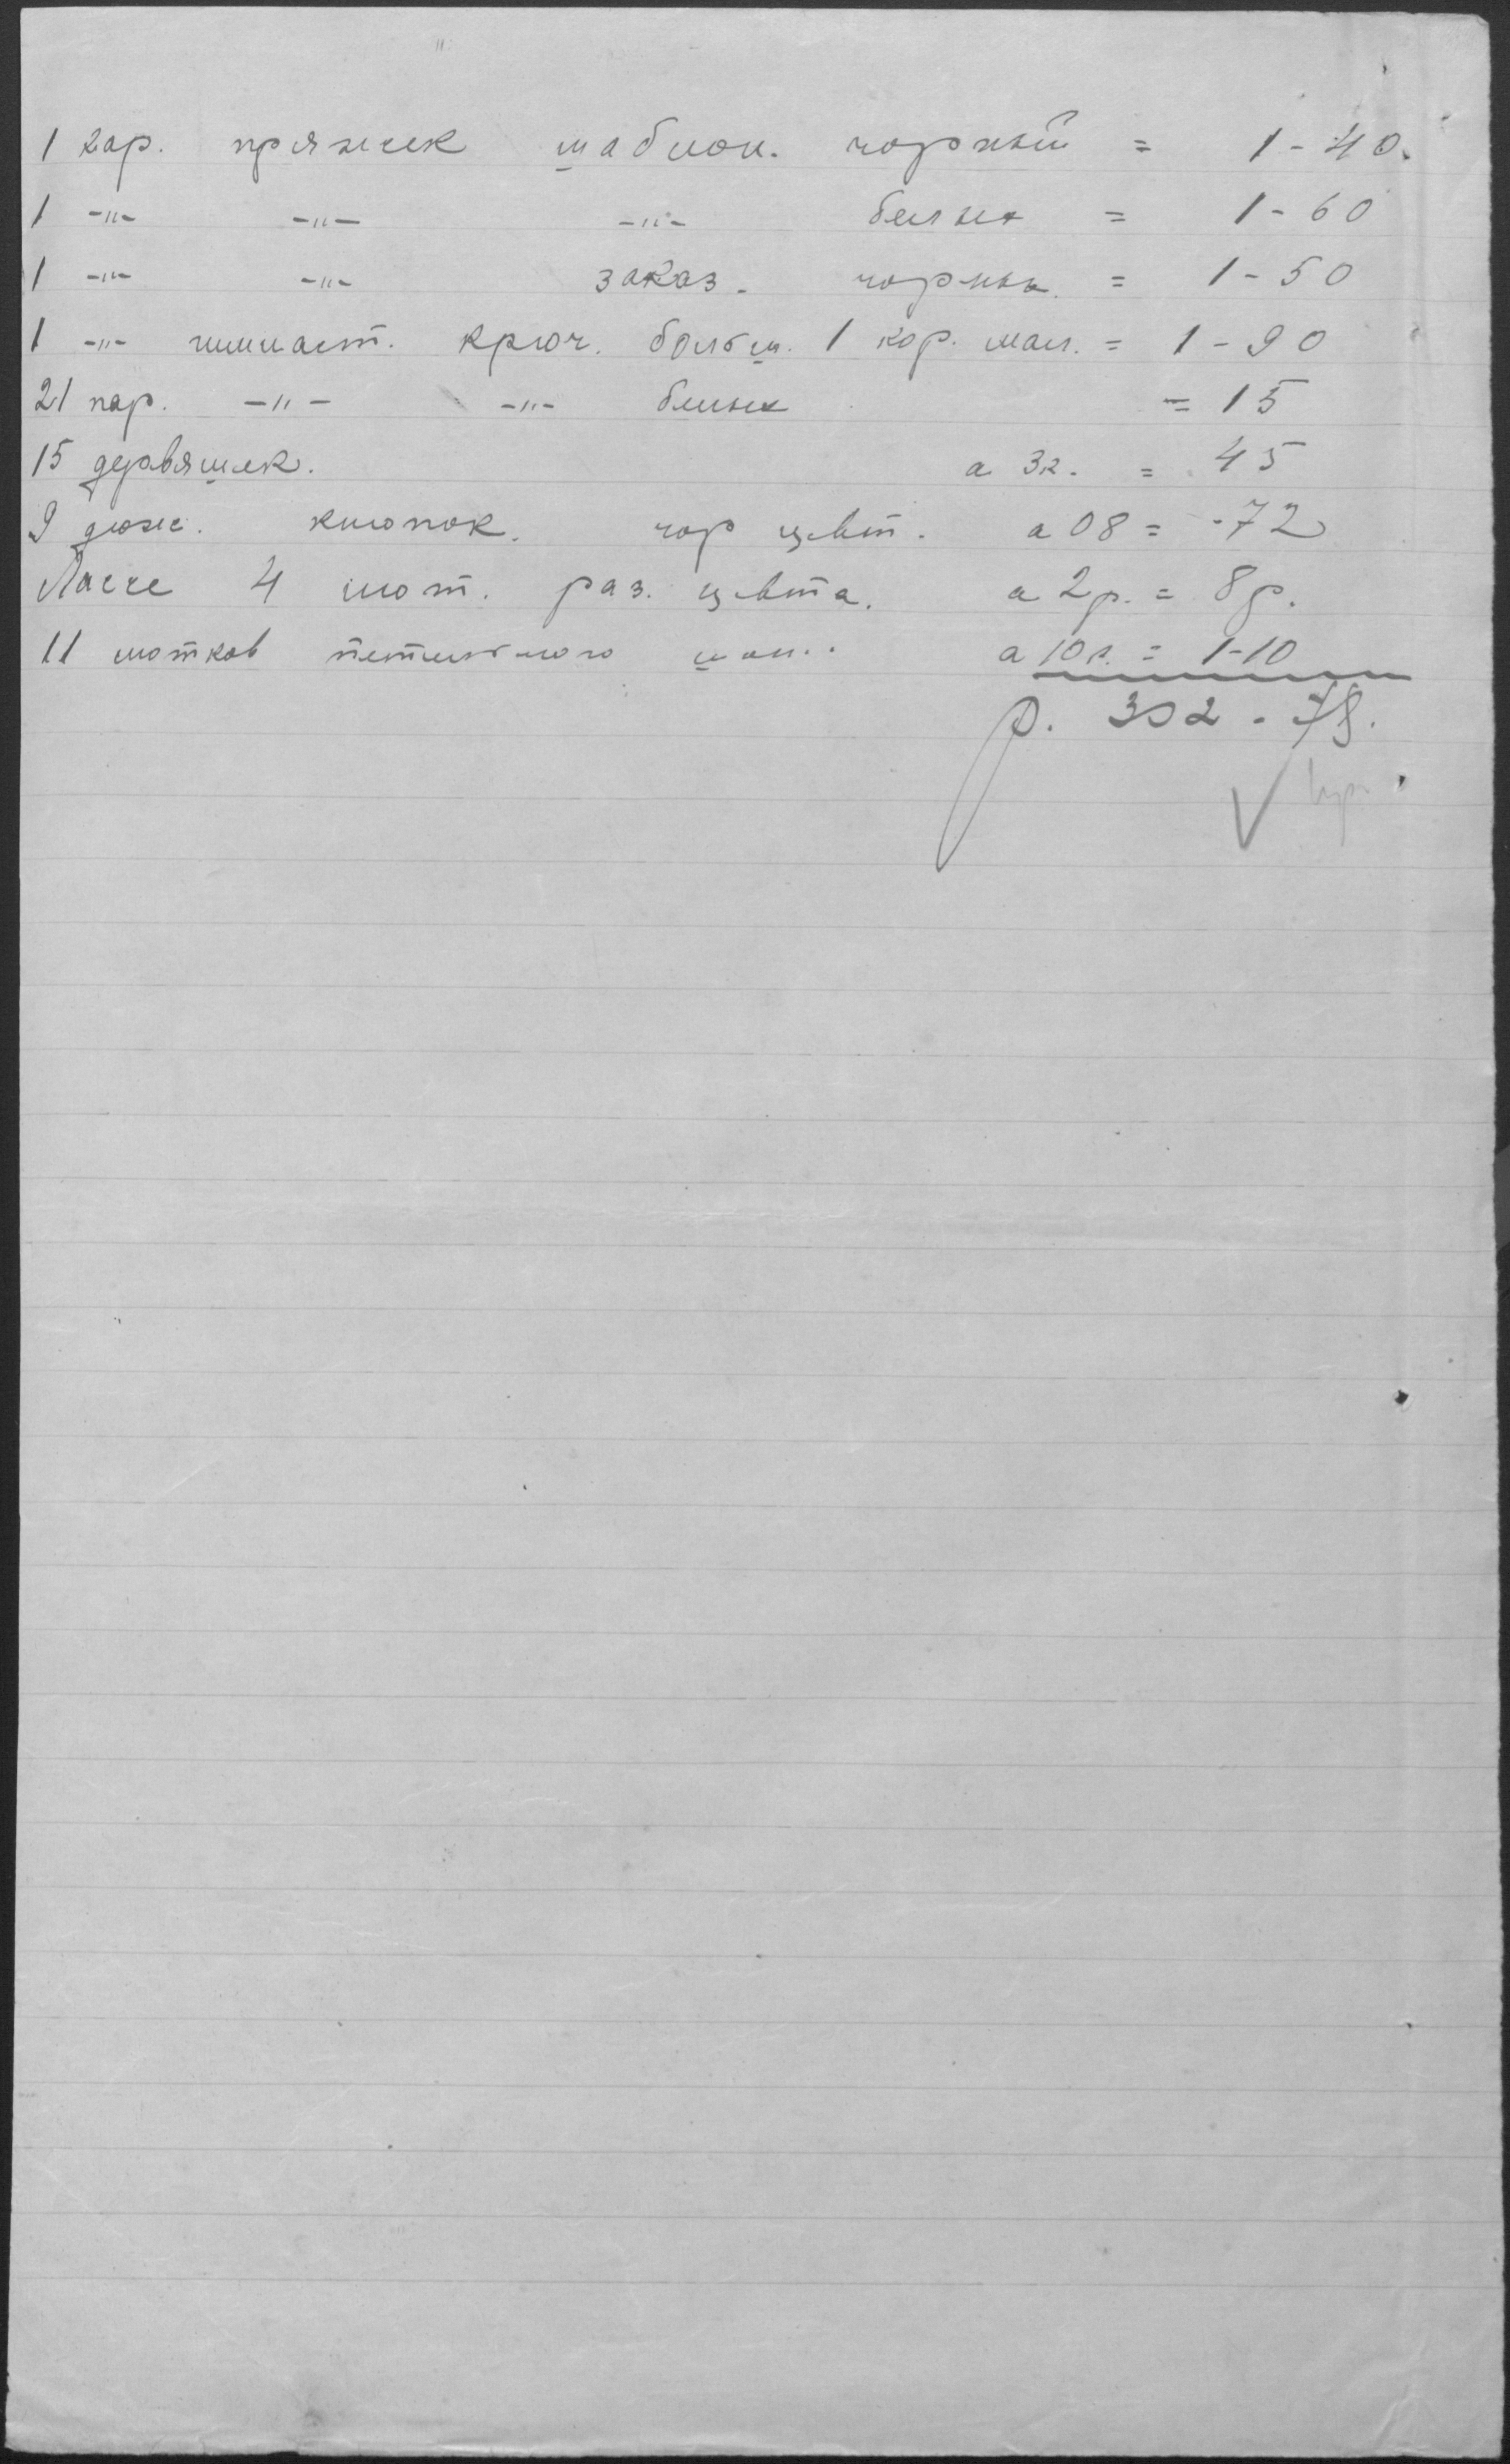 1 кар. пряжек шаблон. чорный = 1-40.
1 -"- -"- -"- белых = 1-60
1 -"- -"- заказ. чорных = 1-50
1 -"- гимнаст. крюч. больш. 1 кор. мал. = 1-90
21 пар. -"- -"- белых = 15
15 деравяшек. а 3к. = 45
9 дюж. кнопок. чор цвт. а 08 = -72
4 мот. раз. цвта. а 2р. = 8р.
11 мотков петельного а 10к. = 1-10
р. 302-78.